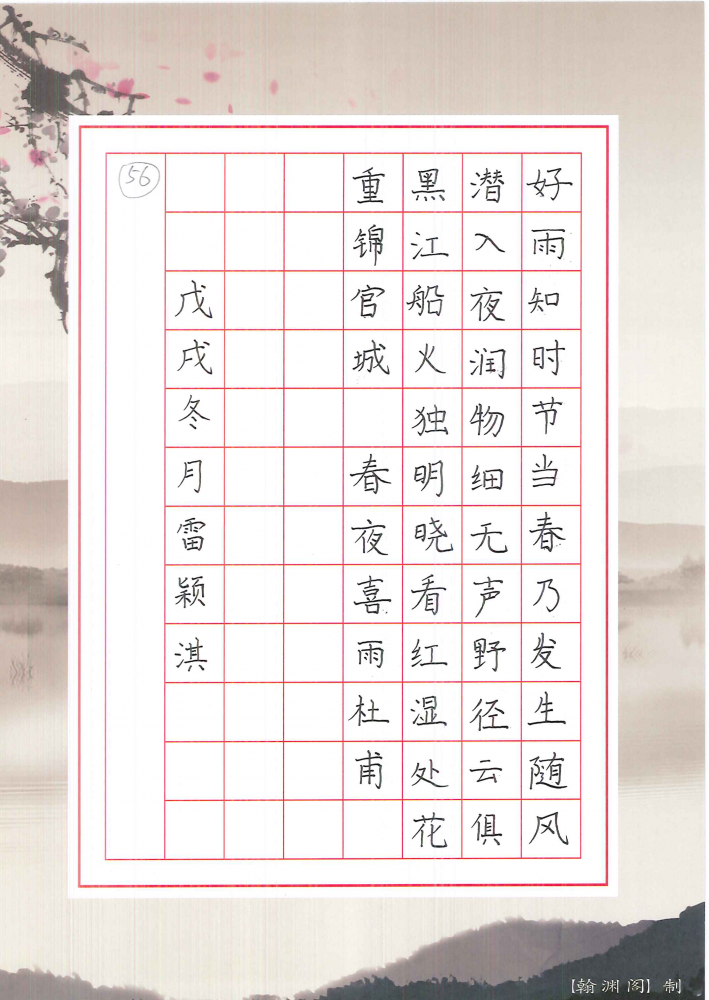 好雨知时节当春乃发生随风
潜入夜润物细无声野径云俱
黑江船火独明晓看红湿处花
重锦官城 春夜喜雨杜甫
戊戌冬月雷颖淇
56
【翰渊阁】制